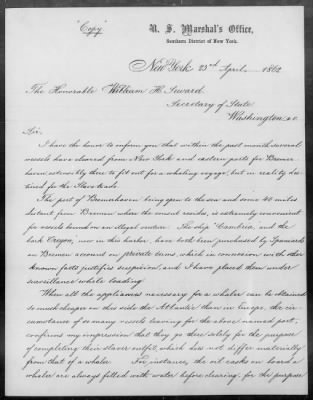 "Copy"
U. S. Marshal's Office,
Southern District of New York.
New York 23rd April 1862
The Honorable William H. Seward
Secretary of State
Washington D.C.
Sir,
I have the honor to inform you that within the past month several
vessels have cleared from New York and eastern ports for Bremer-
haven ostensibly there to fit out for a whaling voyage, but in reality des-
tined for the Slave trade.
The port of Bremerhaven being open to the sea and some 40 miles
distant from Bremen where the consul resides, is extremely convenient
for vessels bound on an illegal venture. The ship "Cambria, and the
bark Oregon, now in this harbor, have both been purchased by Spaniards
on Bremen account on private terms, which in connexion with other
known facts justifies suspicion, and I have placed them under
surveillance while loading.
When all the appliances necessary for a whaler can be obtained
so much cheaper on this side the Atlantic than in Europe, the cir-
cumstance of so many vessels leaving for the above named port,
confirms my impression that they go there solely for the purpose
of completing their slaver outfit, which does not differ materially
from that of a whaler. For instance, the oil casks on board a
whaler are always filled with water before clearing, for the purpose